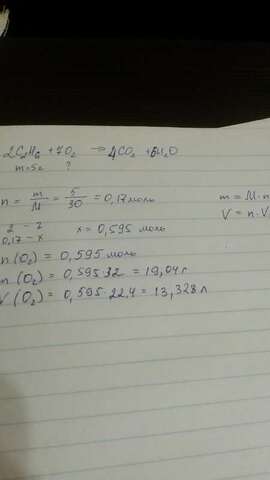 2C₂H₆ + 7O₂ → 4CO₂ + 6H₂O
m=5г ?
n = m/M = 5/30 = 0,17 моль
m = M·n
V = n·V
2 – 7
0,17 – x x = 0,595 моль
n (O₂) = 0,595 моль
m (O₂) = 0,595·32 = 19,04 г
V (O₂) = 0,595·22,4 = 13,328 л